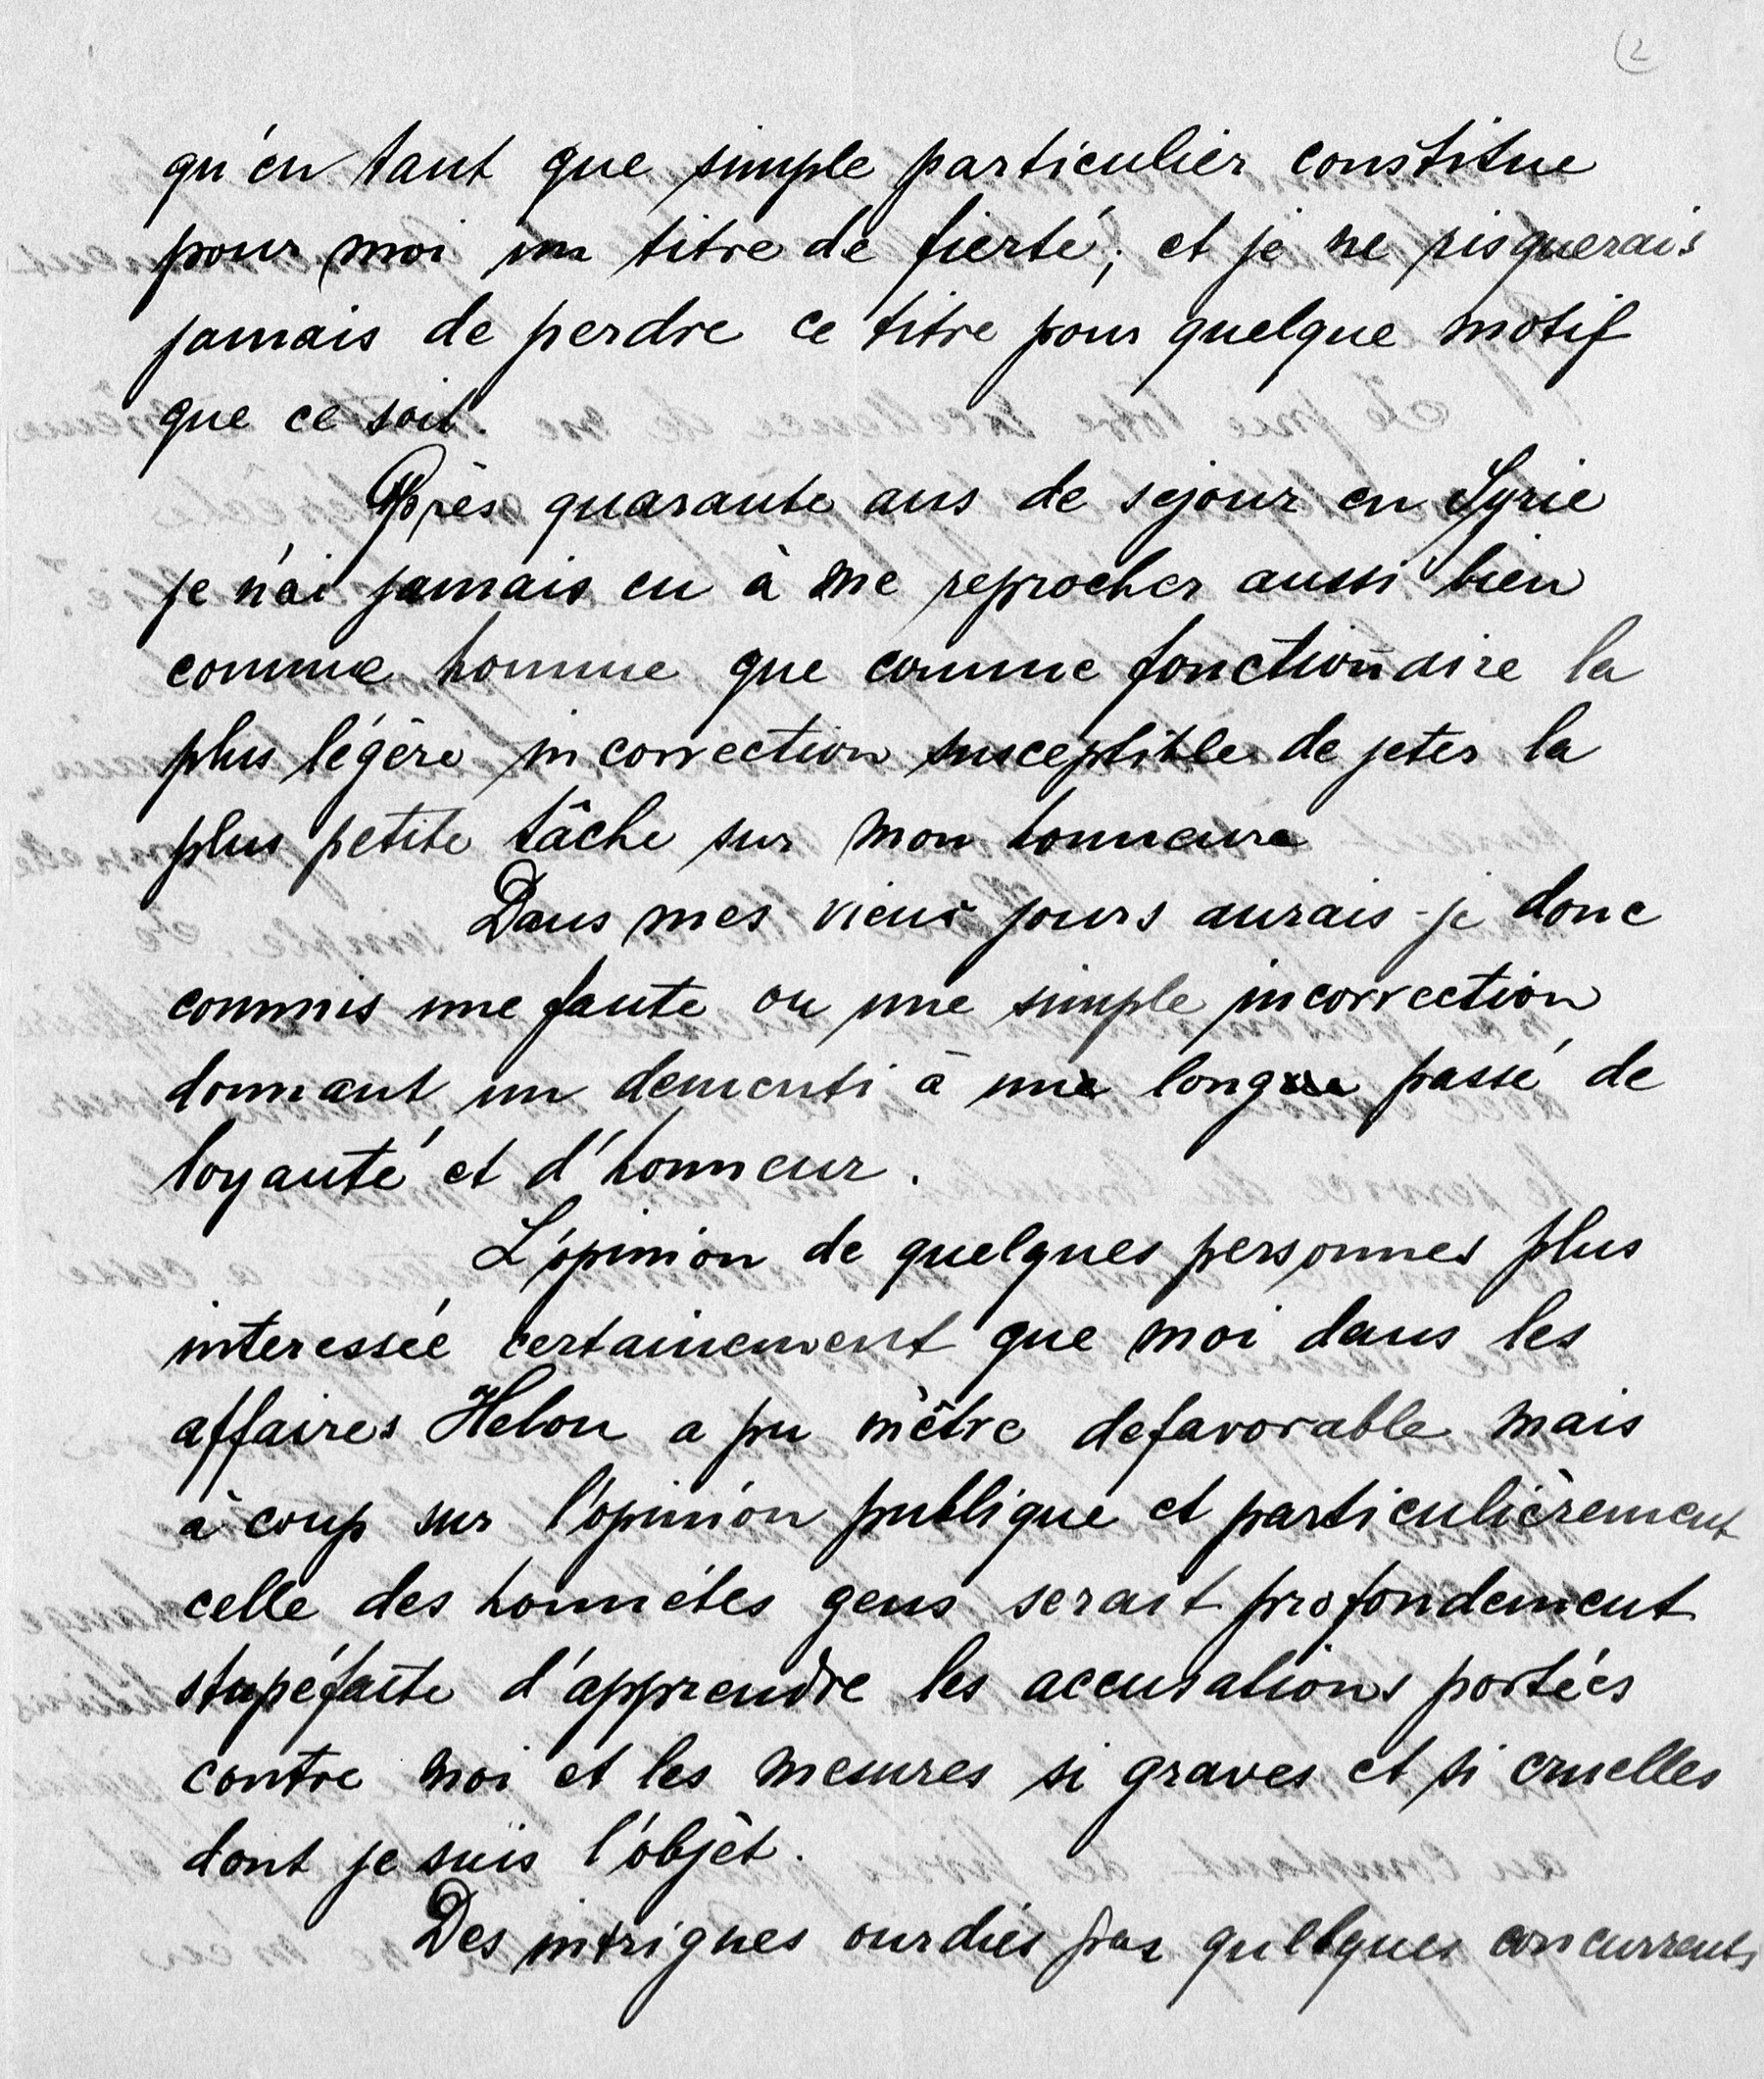 2
qu'en tant que simple particulier constitue
pour moi un titre de fierté; et je ne risquerais
jamais de perdre ce titre pour quelque motif
que ce soit.
Après quarante ans de sejour en Syrie
je n'ai jamais eu à me reprocher aussi bien
comme homme que comme fonctionnaire la
plus légère incorrection susceptible de jeter la
plus petite tâche sur mon honneur
Dans mes vieux jours aurais-je donc
commis une faute ou une simple incorrection
donnant un dementi à un long passé de
loyauté et d'honneur.
L'opinion de quelques personnes plus
interessée certainement que moi dans les
affaires Helou a pu m'être defavorable mais
à coup sur l'opinion publique et particulièrement
celle des honnêtes gens serait profondement
stupéfaite d'apprendre les accusations portées
contre moi et les mesures si graves et si cruelles
dont je suis l'objêt.
Des intrigues ourdies par quelques concurrents